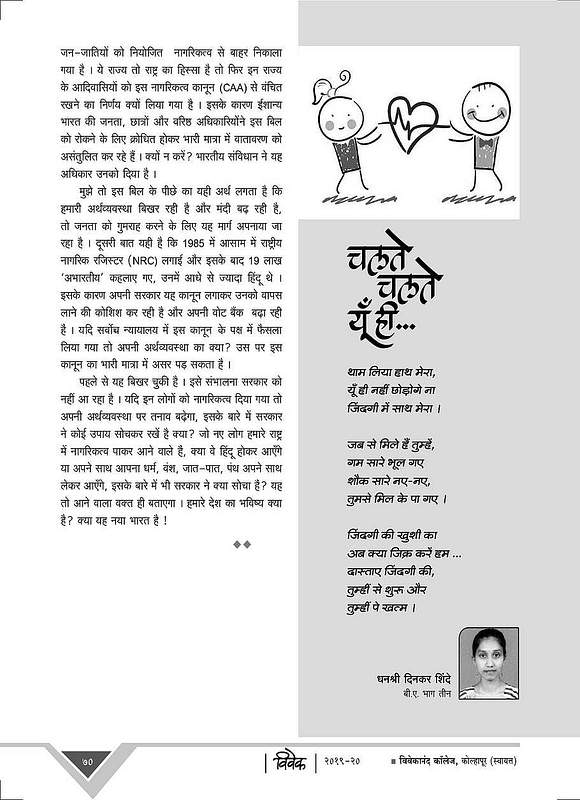 जन-जातियों को नियोजित नागरिकत्व से बाहर निकाला
गया है । ये राज्य तो राष्ट्र का हिस्सा है तो फिर इन राज्य
के आदिवासियों को इस नागरिकत्व कानून (CAA) से वंचित
रखने का निर्णय क्यों लिया गया है । इसके कारण ईशान्य
भारत की जनता, छात्रों और वरिष्ठ अधिकारियोंने इस बिल
को रोकने के लिए क्रोधित होकर भारी मात्रा में वातावरण को
असंतुलित कर रहे हैं । क्यों न करें? भारतीय संविधान ने यह
अधिकार उनको दिया है ।
मुझे तो इस बिल के पीछे का यही अर्थ लगता है कि
हमारी अर्थव्यवस्था बिखर रही है और मंदी बढ़ रही है,
तो जनता को गुमराह करने के लिए यह मार्ग अपनाया जा
रहा है । दूसरी बात यही है कि 1985 में आसाम में राष्ट्रीय
नागरिक रजिस्टर (NRC) लगाई और इसके बाद 19 लाख
'अभारतीय' कहलाए गए, उनमें आधे से ज्यादा हिंदू थे ।
इसके कारण अपनी सरकार यह कानून लगाकर उनको वापस
लाने की कोशिश कर रही है और अपनी वोट बैंक बढ़ा रही
है । यदि सर्वोच न्यायालय में इस कानून के पक्ष में फैसला
लिया गया तो अपनी अर्थव्यवस्था का क्या? उस पर इस
कानून का भारी मात्रा में असर पड़ सकता है ।
पहले से यह बिखर चुकी है । इसे संभालना सरकार को
नहीं आ रहा है । यदि इन लोगों को नागरिकत्व दिया गया तो
अपनी अर्थव्यवस्था पर तनाव बढ़ेगा, इसके बारे में सरकार
ने कोई उपाय सोचकर रखें है क्या? जो नए लोग हमारे राष्ट्र
में नागरिकत्व पाकर आने वाले है, क्या वे हिंदू होकर आएँगे
या अपने साथ आपना धर्म, वंश, जात-पात, पंथ अपने साथ
लेकर आएँगे, इसके बारे में भी सरकार ने क्या सोचा है? यह
तो आने वाला वक्त ही बताएगा । हमारे देश का भविष्य क्या
है? क्या यह नया भारत है !
चलते
चलते
यूँ ही...
थाम लिया हाथ मेरा,
यूँ ही नहीं छोड़ोगे ना
जिंदगी में साथ मेरा ।
जब से मिले हैं तुम्हें,
गम सारे भूल गए
शौक सारे नए-नए,
तुमसे मिल के पा गए ।
जिंदगी की खुशी का
अब क्या जिक्र करें हम ...
दास्ताए जिंदगी की,
तुम्हीं से शुरू और
तुम्हीं पे खत्म ।
धनश्री दिनकर शिंदे
बी.ए. भाग तीन
७०
विवेक
२०१९-२०
विवेकानंद कॉलेज, कोल्हापूर (स्वायत्त)